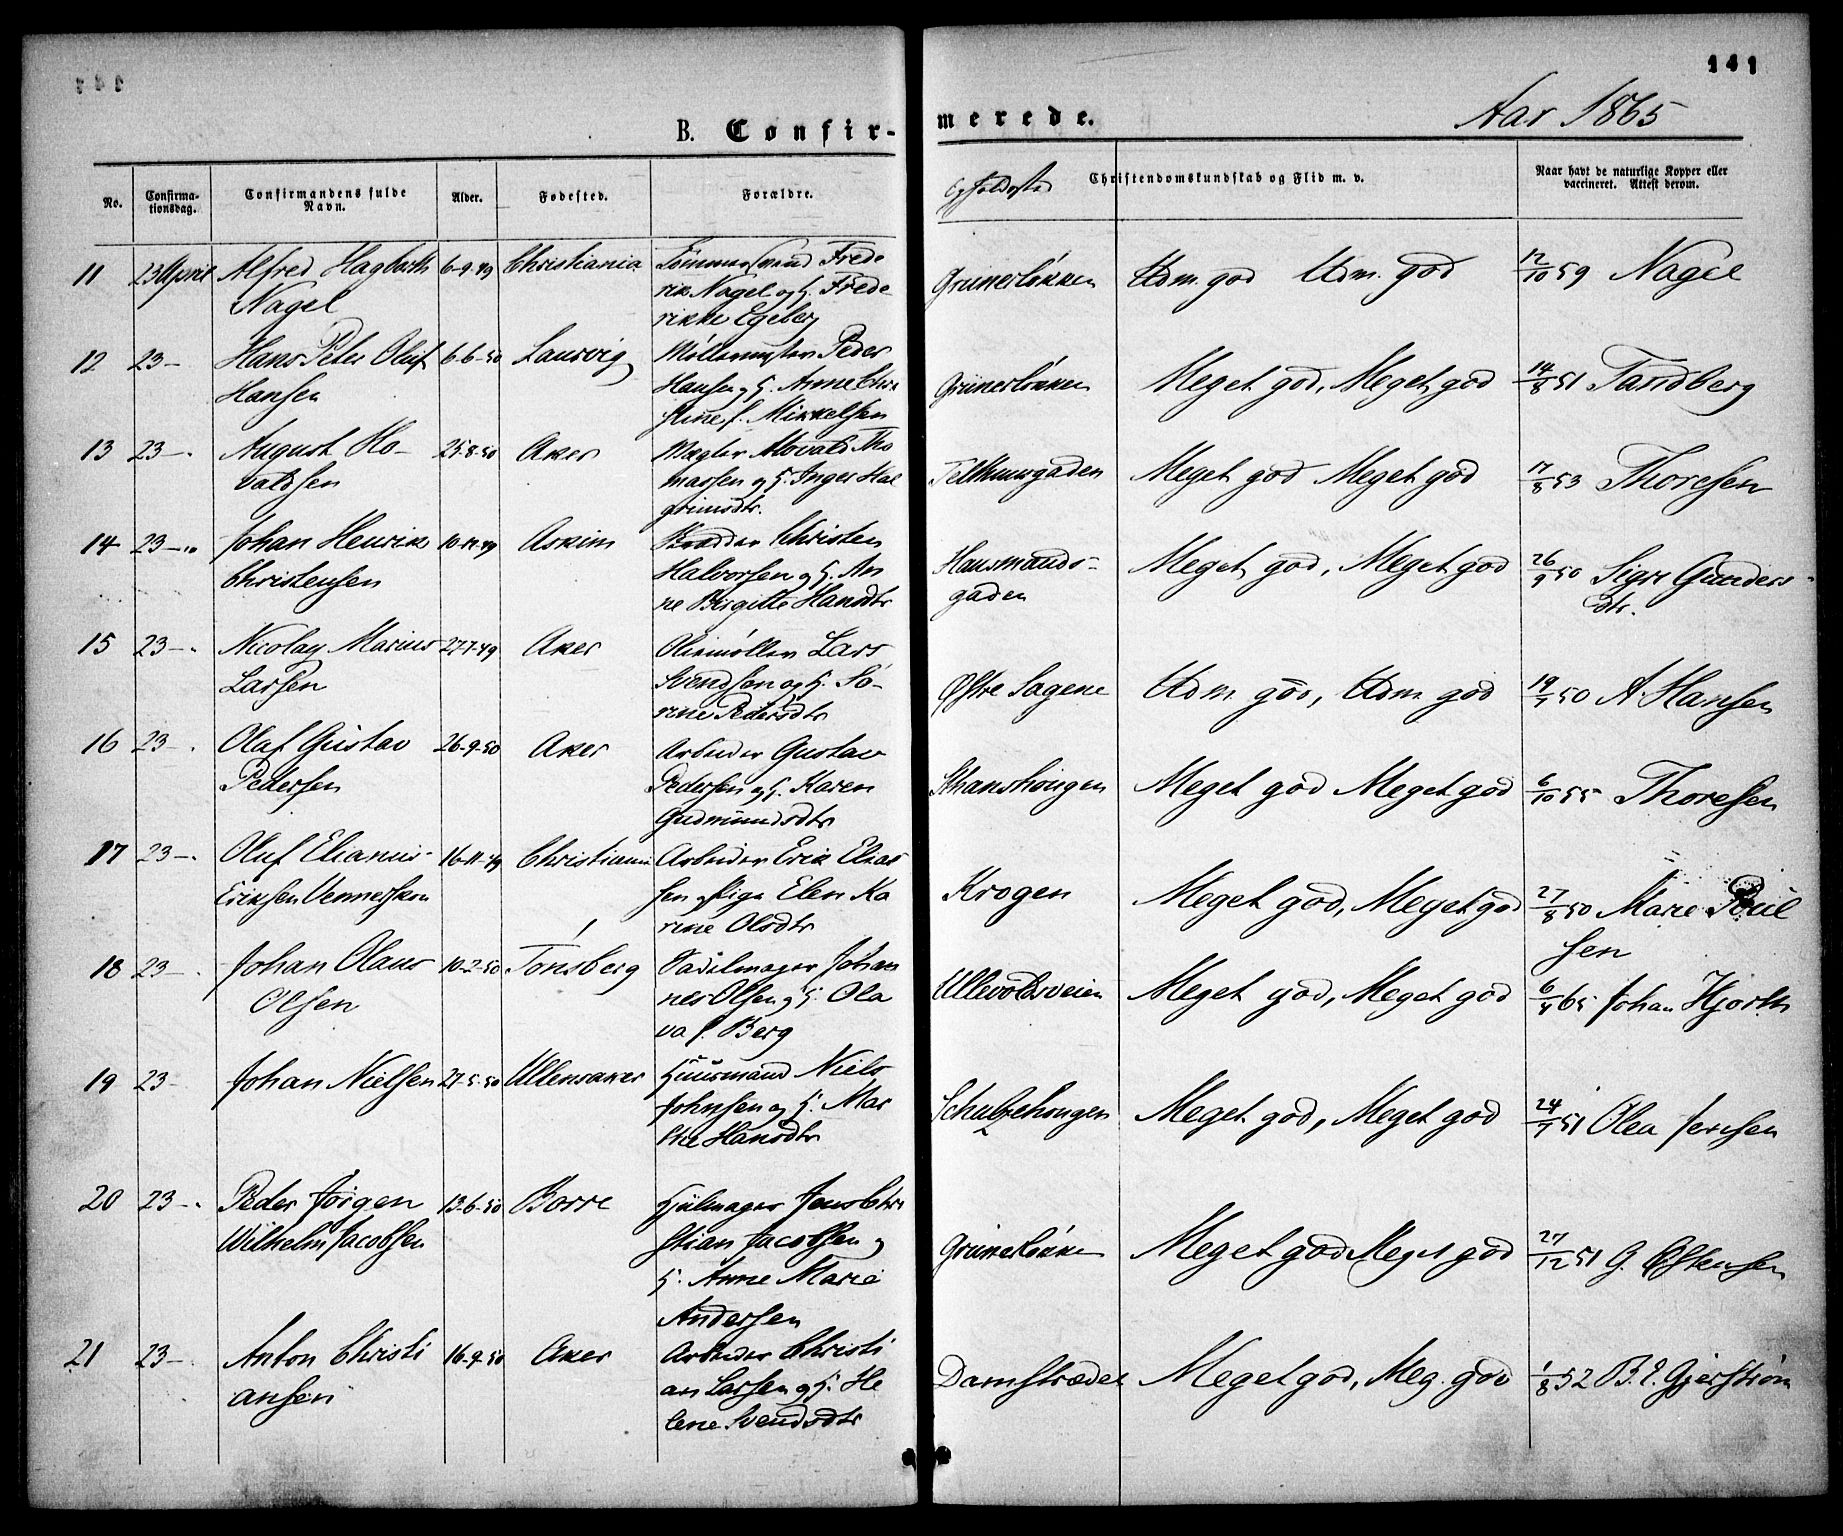 141
B. Confir-
merede.
Aar 1865
No.
Confirma-
tionsdag.
Confirmandens fulde
Navn.
Alder.
Fødested.
Forældre.
Opholdssted
Christendomskundskab og Flid m. v.
Naar havt de naturlige Kopper eller
vaccineret. Attest derom.
11 23 April Alfred Hagbarth 6-9-49 Christiania Tømmermand Frede
Nagel rik Nagel og H. Frede
rikke Egeberg
Grünerløkken Udm. god Udm. god 12/10 59 Nagel
12 23 — Hans Peter Oluf 6-6-50 Laurvig Møllermester Peder
Hansen Hansen og H. Anne Chri
stine f. Mikkelsen
Grünerløkken Meget god, Meget god 14/8 51 Tandberg
13 23 — August Ho- 25-8-50 Aker Thо
valdsen massen og H. Inger Hal
grimsdtr.
Telthusgaden Meget god Meget god 17/8 53 Thoresen
14 23 — Johan Henrik 10-11-49 Askim Christen
Christensen Halvorsen og H. An
ne Birgitte Hansdtr
Hausmands-
gaden Meget god, Meget god 26/9 50 Sigri Gunders-
dtr.
15 23 — Nicolay Marius 27-7-49 Aker Oliemøller Lars
Larsen Svendsen og H. Sö-
rine Pedersdtr
Østre Sagene Udm. god, Udm. god 19/7 50 A Hansen
16 23 — Olaf Gustav 26-9-50 Aker Arbeider Gustav
Pedersen Pedersen og H. Karen
Gudmundsdtr
Sthanshougen Meget god Meget god 6/10 55 Thoresen
17 23 — Oluf Elianus 16-11-49 Christiania Arbeider Erik Elias
Eriksen Vennersken sen og Pige Elen Ka
rine Olsdtr
Krogen Meget god, Meget god 27/8 50 Marie Poul
sen
18 23 — Johan Olaus 10-2-50 Tönsberg Sadelmager Johan
Olsen nes Olsen og H. Ola
va f. Berg
Ullevoldsveien Meget god, Meget god 6/4 65 Johan Hjorth
19 23 — Johan Nielsen 27-5-50 Ullensaker Huusmand Niels
Johnsen og H. Mar
the Hansdtr
Schultzehougen Meget god, Meget god 24/7 51 Olea Jensen
20 23 — Peder Jörgen 13-6-50 Borre Hjulmager Jens Chri
Wilhelm Jacobsen stian Jacobsen og
H. Anne Marie
Andersen
Grünerløkken Meget god Meget god 27/12 51 G. Østensen
21 23 — Anton Christi 16-9-50 Aker Arbeider Christi
ansen an Larsen og H. He
lene Svendsdtr
Damstrædet Meget god, Meg. god 1/8 52 B. E. Gjerström